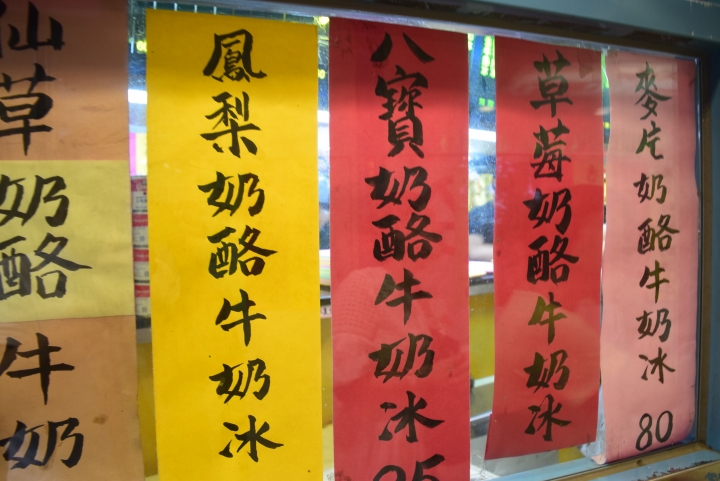 仙草奶酪牛奶
鳳梨奶酪牛奶冰
八寶奶酪牛奶冰
草莓奶酪牛奶冰
麥片奶酪牛奶冰 80